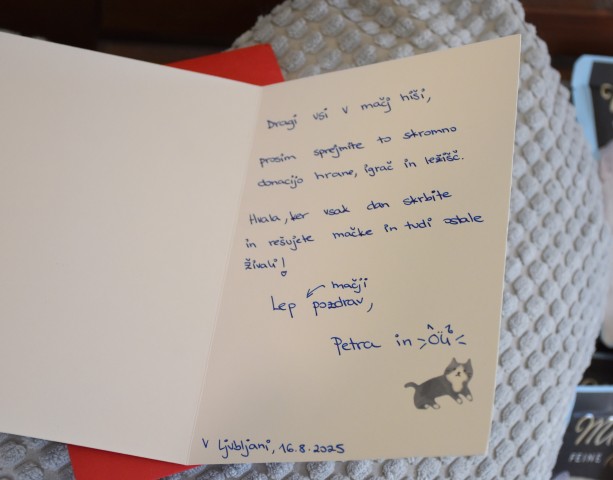 Dragi vsi v mačji hiši,
prosim sprejmite to skromno
donacijo hrane, igrač in ležišč.
Hvala, ker vsak dan skrbite
in rešujete mačke in tudi ostale
živali!
mačji
Lep pozdrav,
Petra in
V Ljubljani, 16.8.2025
FEINE